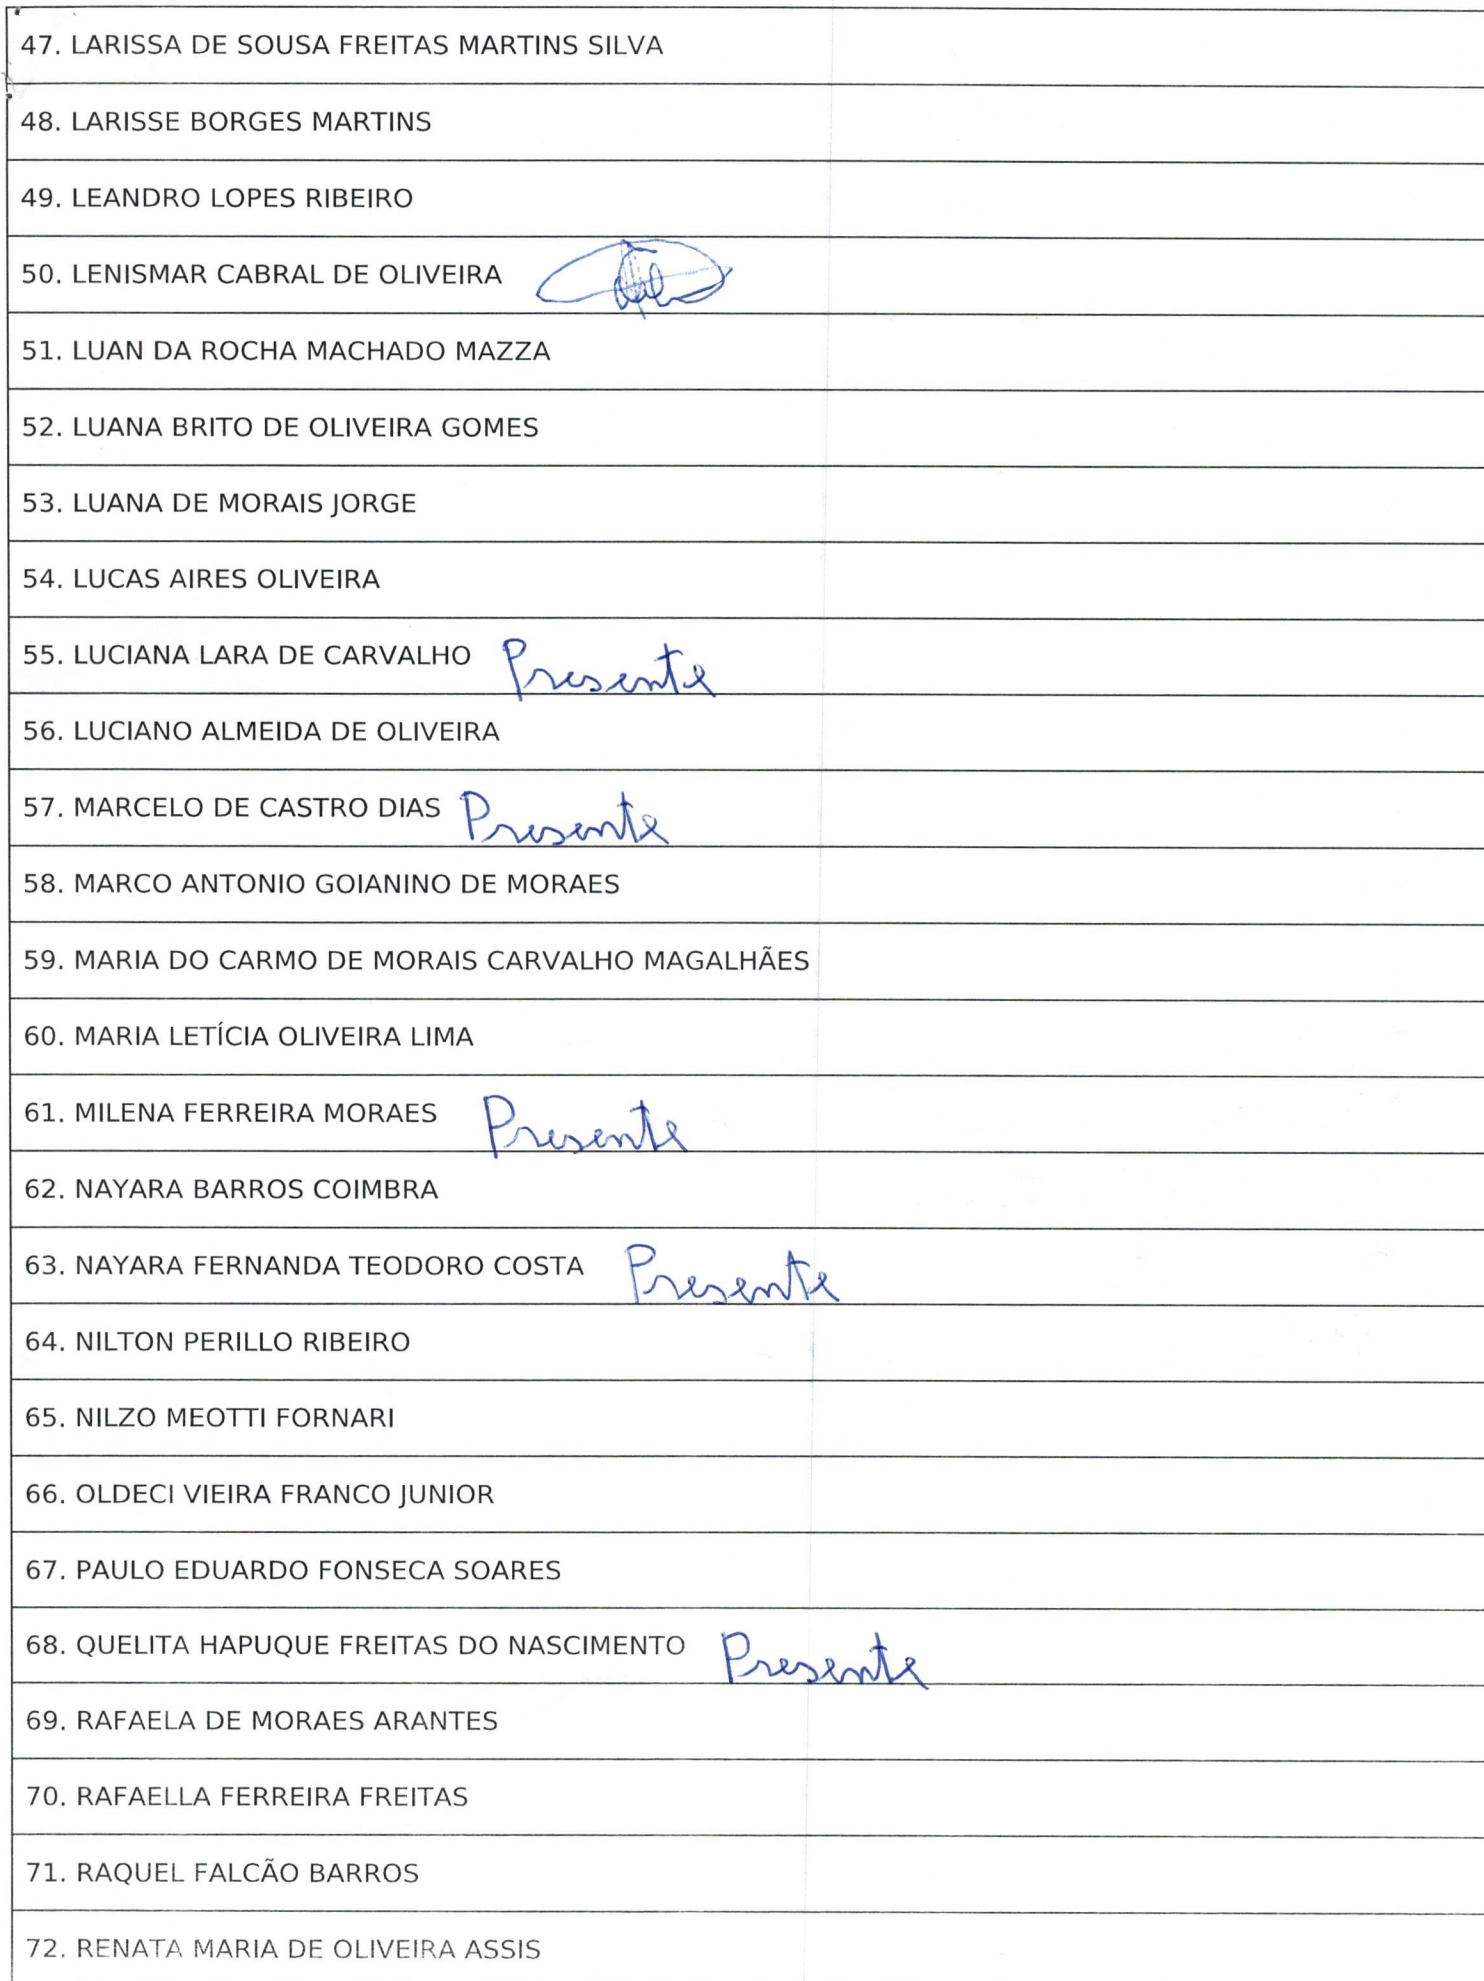 47. LARISSA DE SOUSA FREITAS MARTINS SILVA
48. LARISSE BORGES MARTINS
49. LEANDRO LOPES RIBEIRO
50. LENISMAR CABRAL DE OLIVEIRA
51. LUAN DA ROCHA MACHADO MAZZA
52. LUANA BRITO DE OLIVEIRA GOMES
53. LUANA DE MORAIS JORGE
54. LUCAS AIRES OLIVEIRA
55. LUCIANA LARA DE CARVALHO Presente
56. LUCIANO ALMEIDA DE OLIVEIRA
57. MARCELO DE CASTRO DIAS Presente
58. MARCO ANTONIO GOIANINO DE MORAES
59. MARIA DO CARMO DE MORAIS CARVALHO MAGALHÃES
60. MARIA LETÍCIA OLIVEIRA LIMA
61. MILENA FERREIRA MORAES Presente
62. NAYARA BARROS COIMBRA
63. NAYARA FERNANDA TEODORO COSTA Presente
64. NILTON PERILLO RIBEIRO
65. NILZO MEOTTI FORNARI
66. OLDECI VIEIRA FRANCO JUNIOR
67. PAULO EDUARDO FONSECA SOARES
68. QUELITA HAPUQUE FREITAS DO NASCIMENTO Presente
69. RAFAELA DE MORAES ARANTES
70. RAFAELLA FERREIRA FREITAS
71. RAQUEL FALCÃO BARROS
72. RENATA MARIA DE OLIVEIRA ASSIS